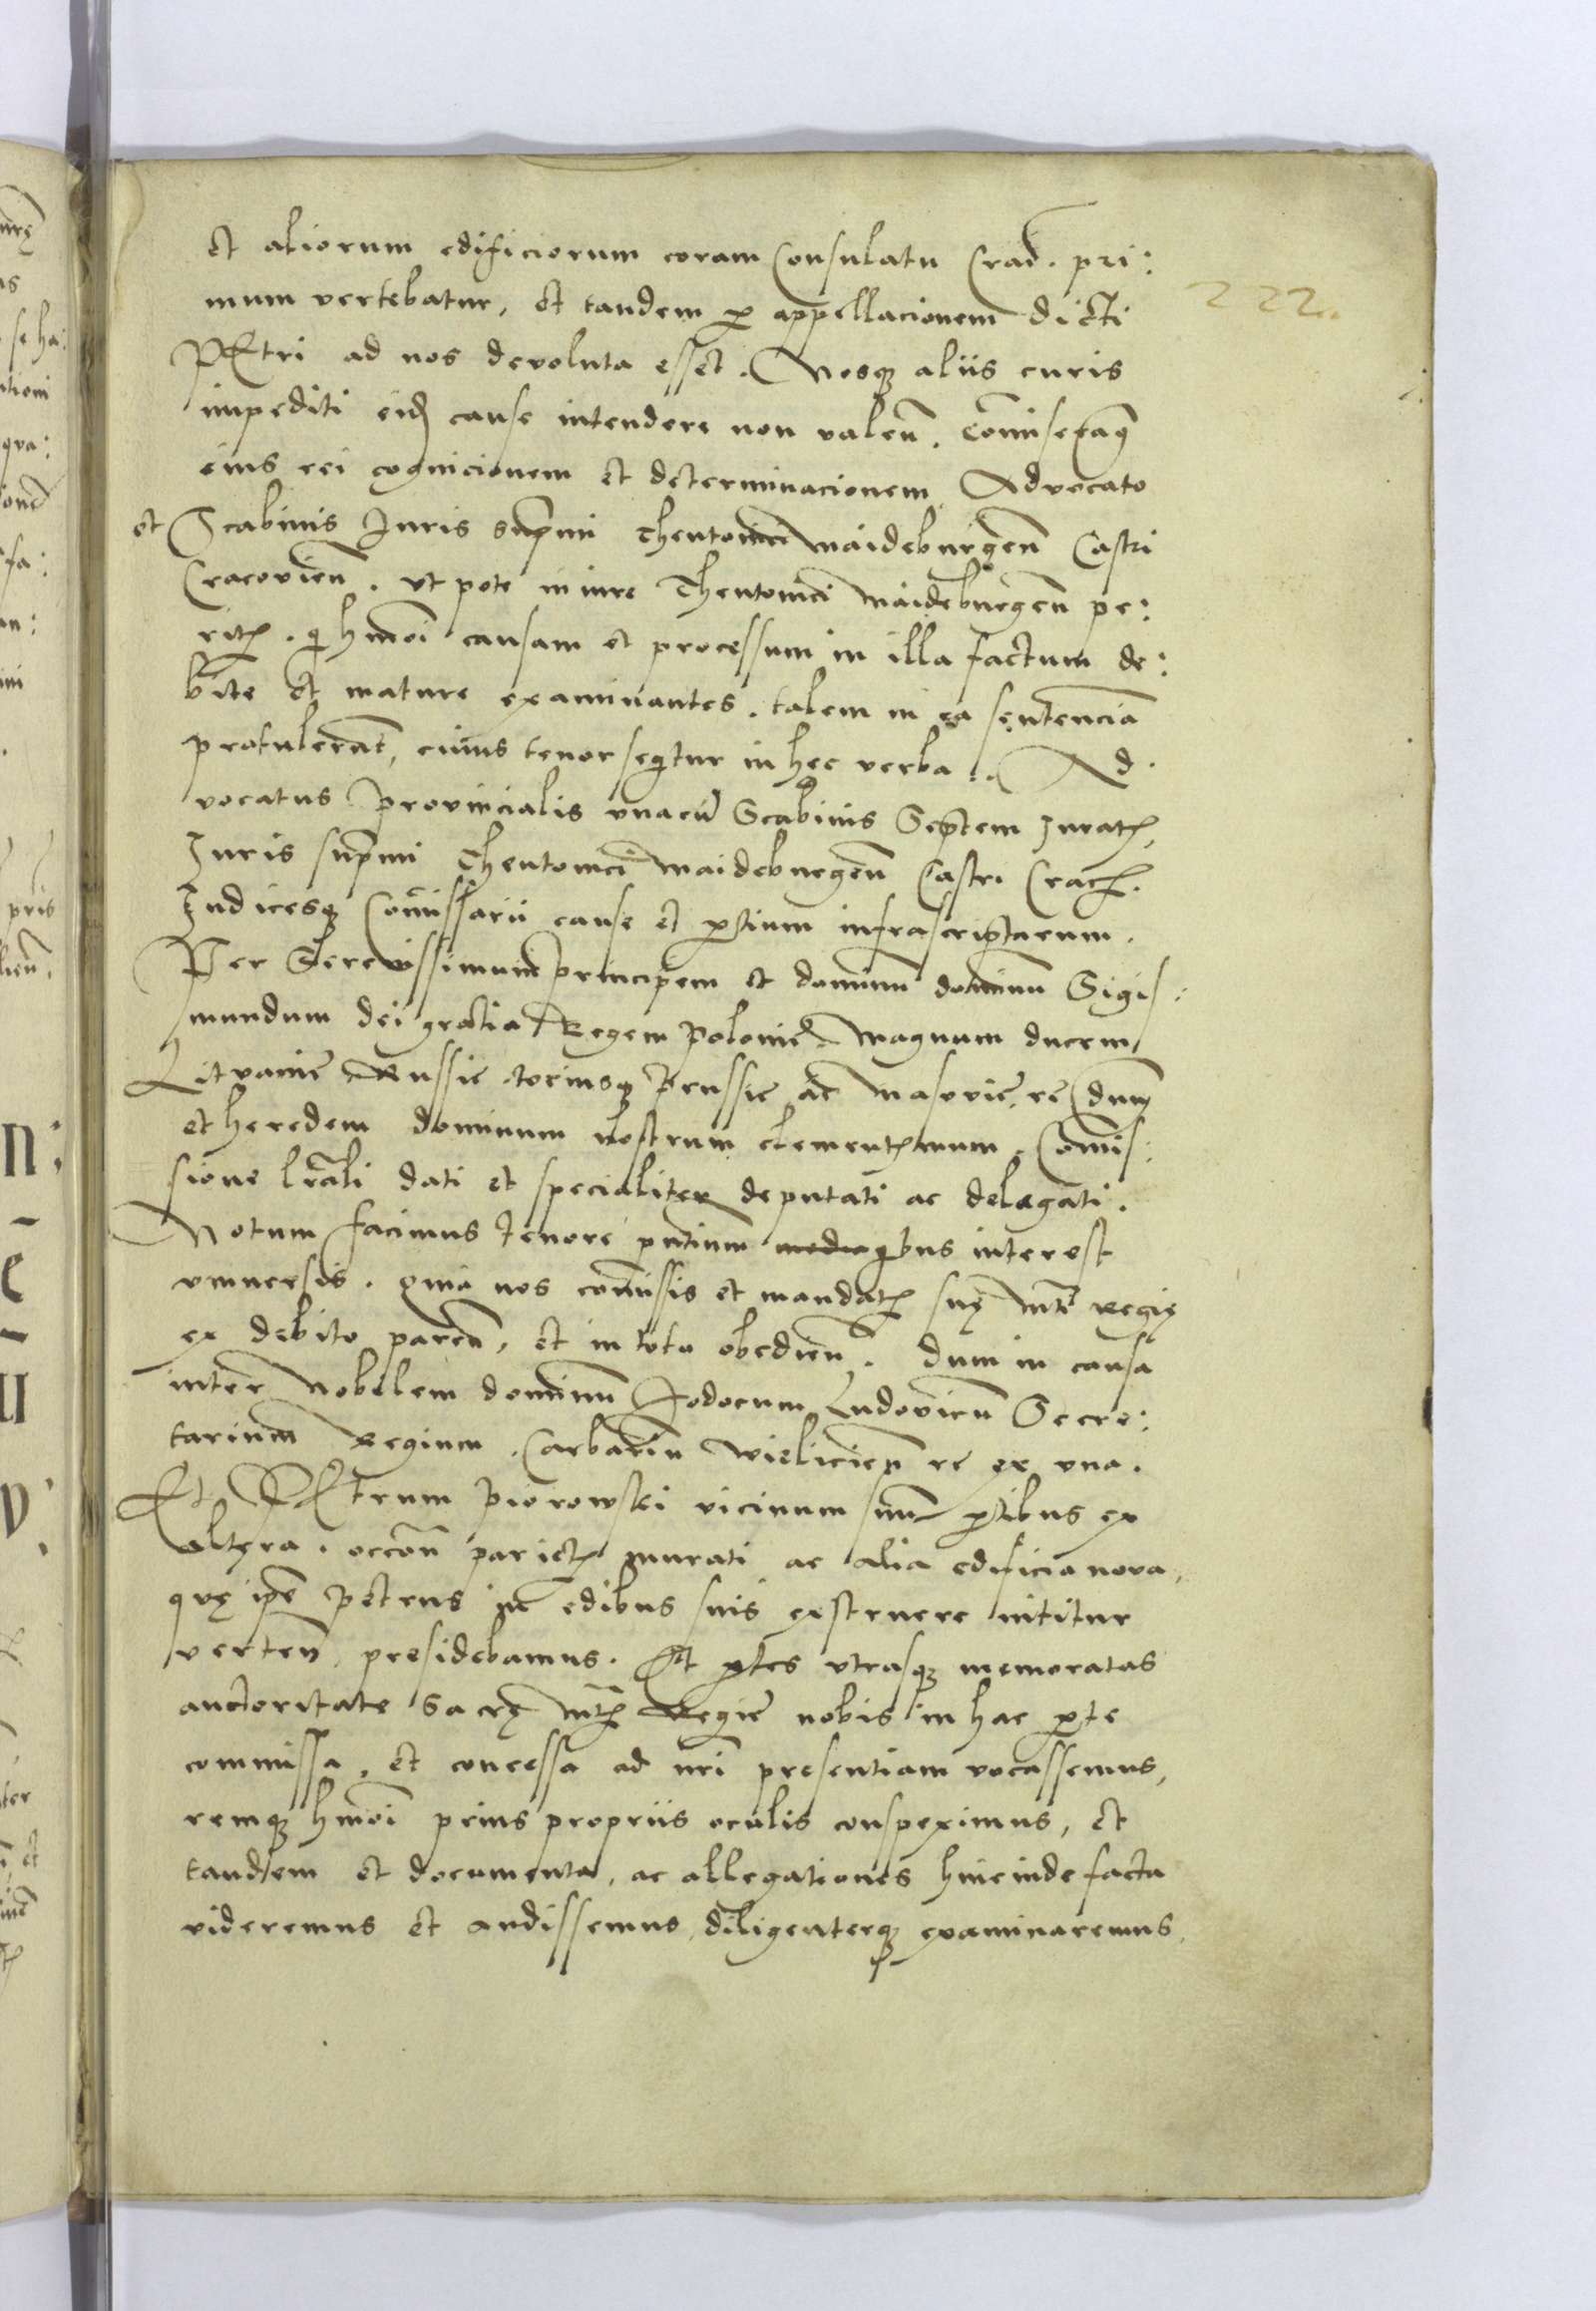 et aliorum edificiorum coram Consulatu Crac. pri:
mum vertebatur, et tandem p appellacionem dicti
PEtri ad nos devoluta esset. Nosq aliis curis
impediti eid cause intendere non valen. Comiseramq
eius rei cognicionem et determinacionem Advocato
et Scabinis Juris supmi theutonici maideburgen Castri
Cracovien. ut pote in iure Theutonici maideburgen pe:
rit. q hmoi causam et processum in illa factum de:
bite et mature examinantes. talem in ea sentenciã
protulerãt, cuius tenor seqtur in hęc verba. Ad.
vocatus Provincialis unacũ Scabinis Septem Jurat,
Juris supmi Theutonici maideburgen Castri Crac.
Judicesq Comissarii cause et ptium infrascriptarum.
Per Serenissimum principem et dominũ dominũ Sigis:
mundum dei gratia Regem Polonie. Magnum ducem
Litvanie Russie tociusq Prussie ac masovie, re dnm
et heredem dominum nostrum clementmum. Comis:
sione lrali dati et specialiter deputati ac delegati.
Notum facimus tenore pntium qbus interest
universis. quia nos comissis et mandat suę mte Regię
ex debito paren, et in toto obedien. dum in causa
inter Nobilem dominũ Jodocum Ludovicũ Secre:
tarium Regium. Carbariũ wielicien re ex una.
Et PEtrum Piorowski vicinum suũ ptibus ex
altera. occõn pariet murati ac alia edificia nova,
quę ipe Petrus in edibus suis exstruere nititur
verten, presidebamus. Et ptes utrasq memoratas
auctoritate Sacrę mt Regie nobis in hac pte
commissa, et concessa ad nri presentiam vocassemus,
remq hmoi prius propriis oculis conspeximus, et
tandem et documenta, ac allegationes hincinde facta
videremus et audissemus, diligenterq examinaremus,
222